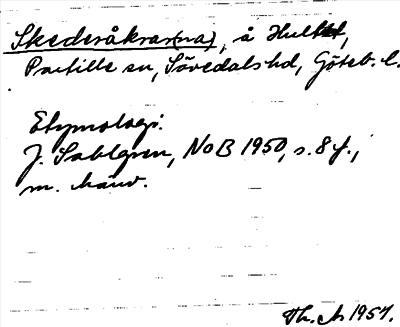 Skederåkrar(na), å Hultet,
Partille sn, Sävedals hd, Göteb. l.
Etymologi:
J. Sahlgren, NoB 1950, s. 8 f.,
m. hänv.
Th. A 1957.